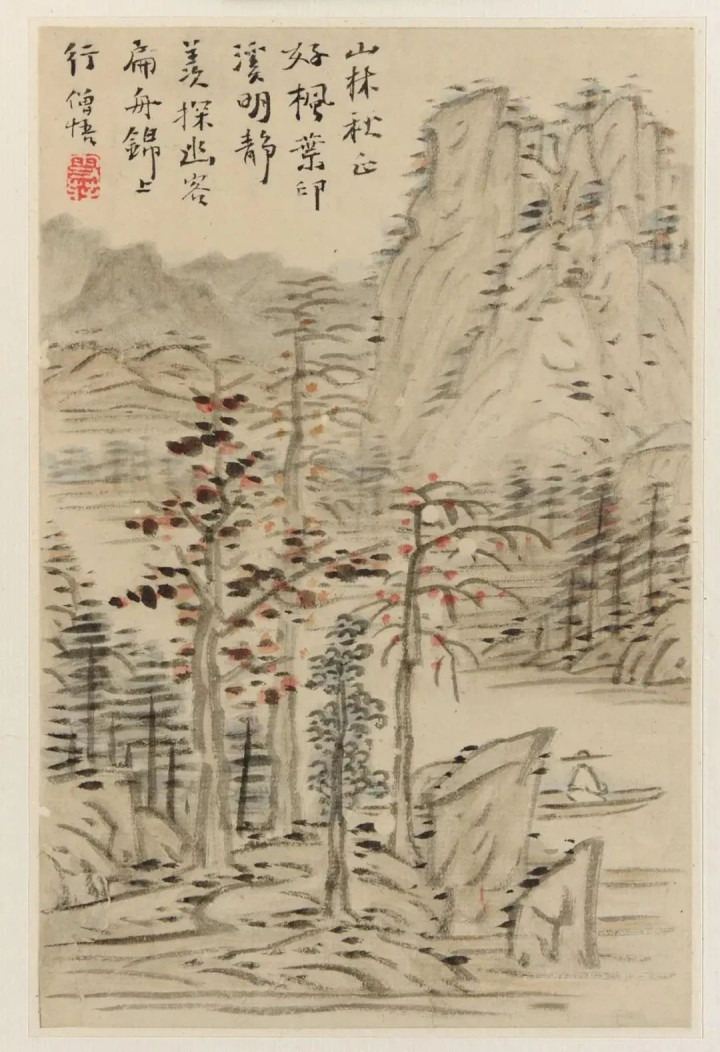 山林秋正
好楓葉印
溪明靜
羨探幽客
扁舟錦上
行 僧悟